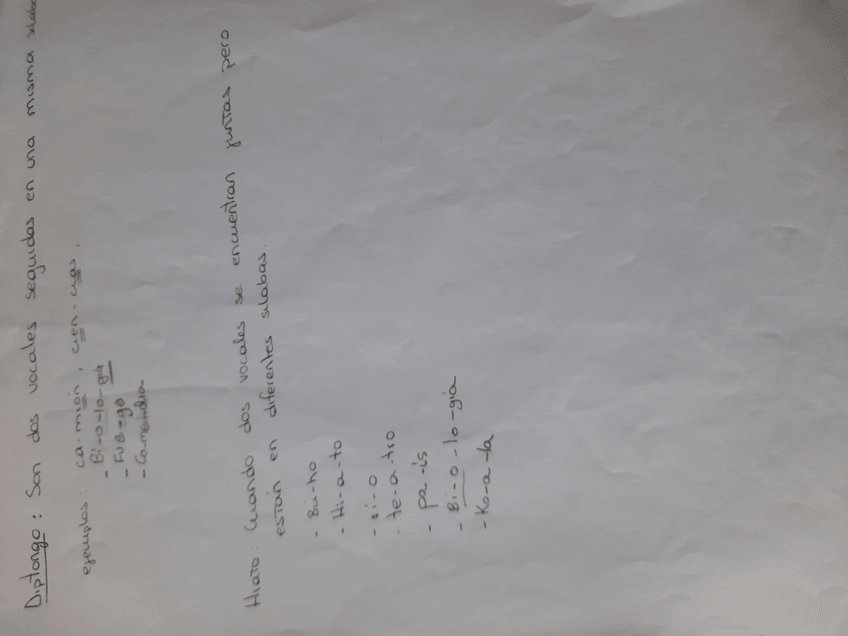 Diptongo: Son dos vocales seguidas en una misma silaba
ejemplos: ca-mión, cien-cias.
- Bi-o-lo-gia
- Fue-go
Hiato: Cuando dos vocales se encuentran juntas pero
están en diferentes silabas.
- Bú-ho
- Hi-a-to
- ti-o
- te-a-tro
- pa-ís
- Bi-o-lo-gia
- Ko-a-la